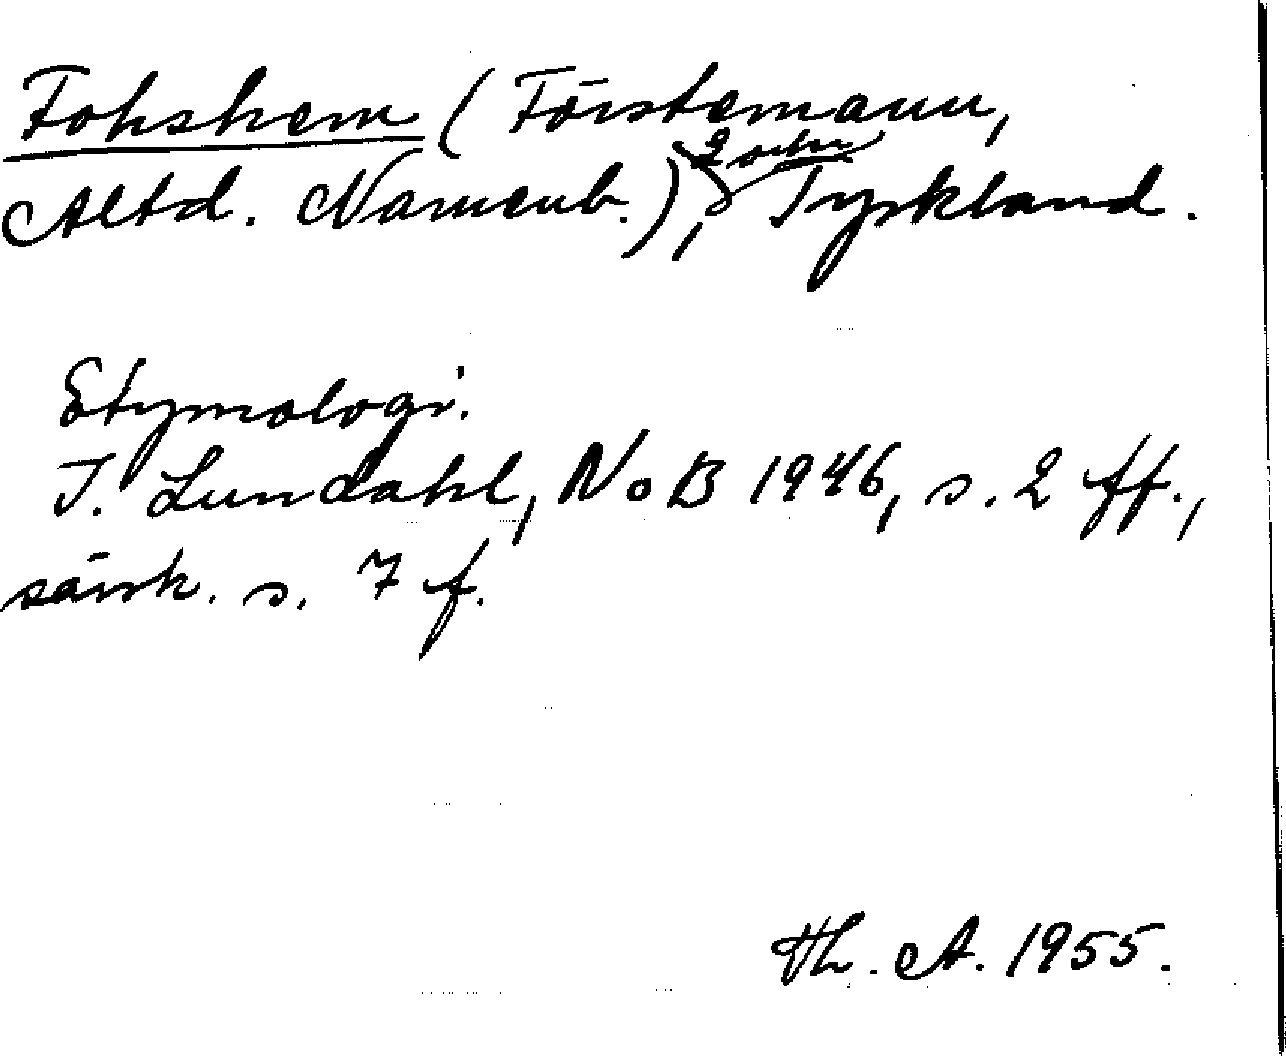 Fohshem (Förstemann,
Altd. Namenb.), 2 orter Tyskland.
Etymologi.
I. Lundahl, NoB 1946, s. 2 ff.,
särsk. s. 7 f.
Th. A. 1955.